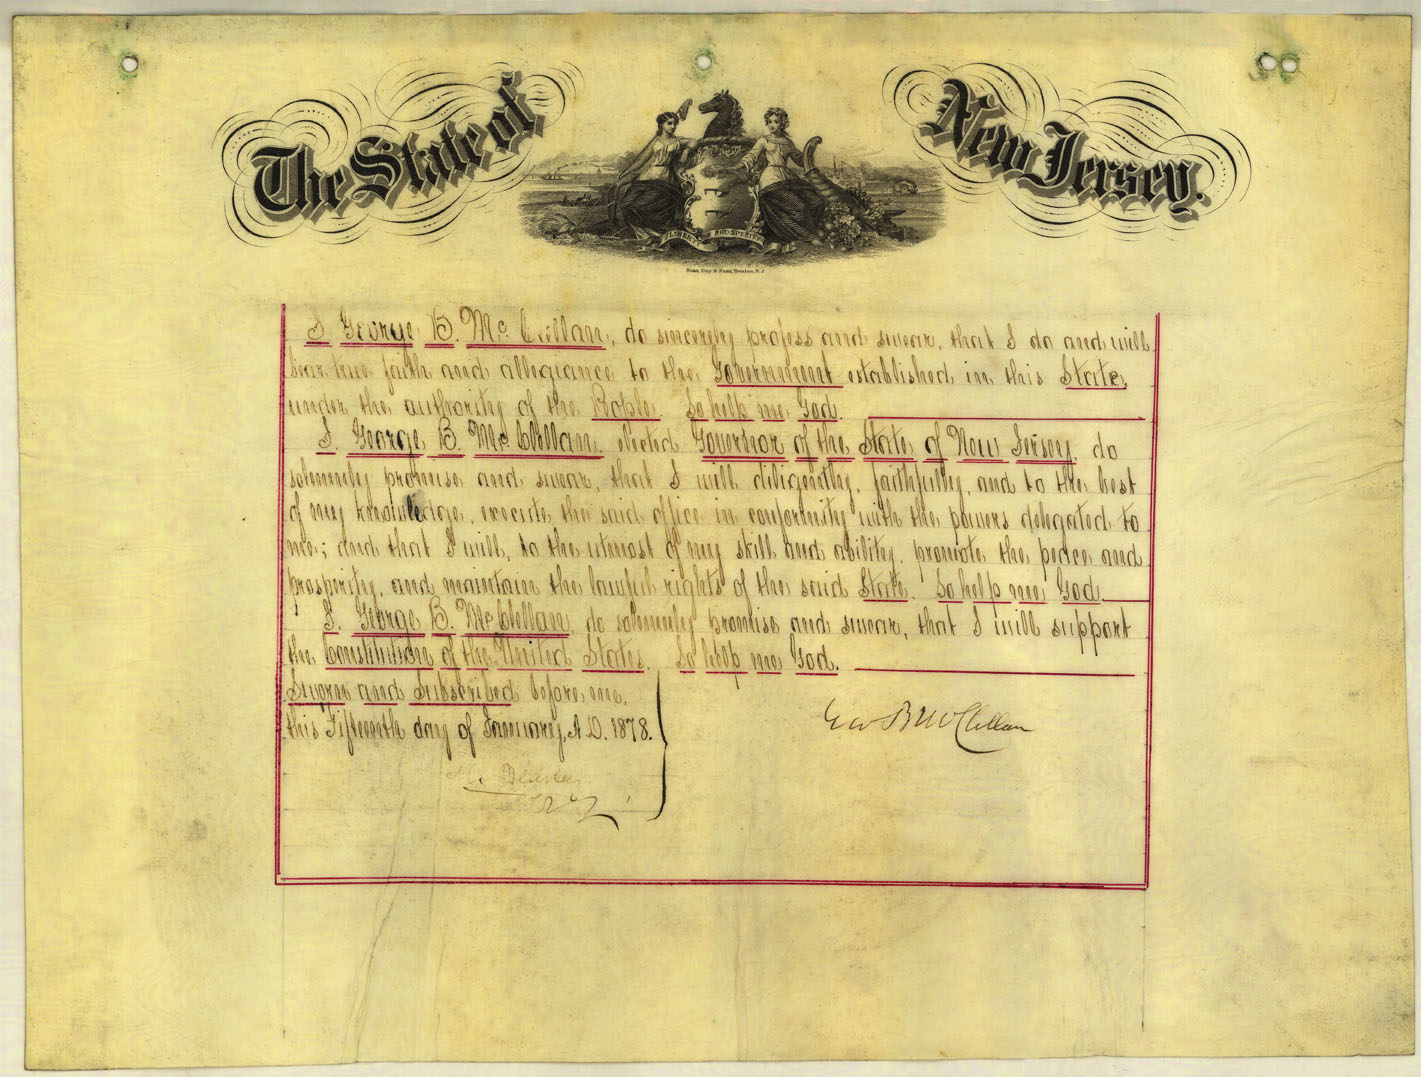 The State of New Jersey.
LIBERTY PROSPERITY
Naar, Day & Naar, Trenton, N. J.
I George B. Mc Clellan, do sincerely profess and swear, that I do and will
bear true faith and allegiance to the Government established in this State,
under the authority of the People. So help me God.
I, George B. Mc Clellan, elected Governor of the State of New Jersey, do
solemnly promise and swear, that I will diligently, faithfully, and to the best
of my knowledge, execute the said office in conformity with the powers delegated to
me; and that I will, to the utmost of my skill and ability, promote the peace and
prosperity, and maintain the lawful rights of the said State. So help me God.
I, George B. Mc Clellan, do solemnly promise and swear, that I will support
the Constitution of the United States. So help me God.
Sworn and Subscribed before me,
this Fifteenth day of January, A.D. 1878.
Geo B McClellan
M. Beasley